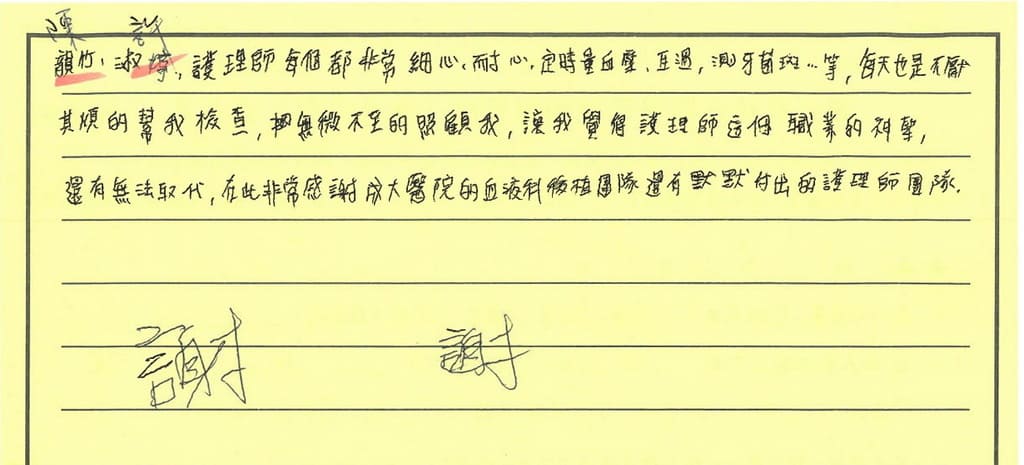 陳 許
韻竹、淑婷、護理師每個都非常細心、耐心、定時量血壓、血過，測牙菌斑…等，每天也是不厭
其煩的幫我檢查，把無微不至的照顧我，讓我覺得護理師這個職業的神聖，
還有無法取代，在此非常感謝成大醫院的血液科移植團隊還有默默付出的護理師團隊.
謝 謝